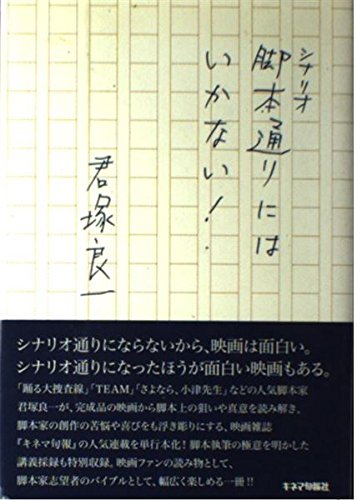 シナリオ
脚本通りには
いかない!
君塚良一
シナリオ通りにならないから、映画は面白い。
シナリオ通りになったほうが面白い映画もある。
「踊る大捜査線」「TEAM」「さよなら、小津先生」などの人気脚本家
君塚良一が、完成品の映画から脚本上の狙いや真意を読み解き、
脚本家の創作の苦悩や喜びをも浮き彫りにする、映画雑誌
『キネマ旬報』の人気連載を単行本化!脚本執筆の極意を明かした
講義採録も特別収録。映画ファンの読み物として、
脚本家志望者のバイブルとして、幅広く楽しめる一冊!!
キネマ旬報社